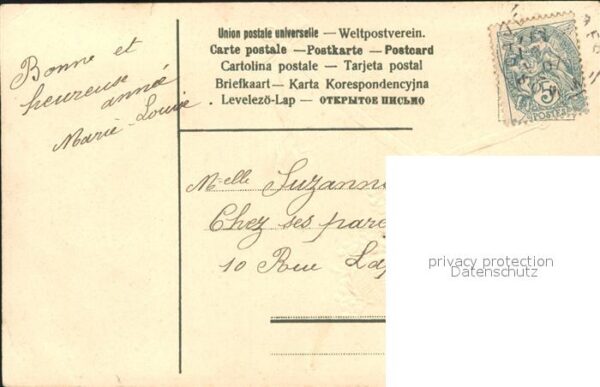 Union postale universelle — Weltpostverein.
Carte postale — Postkarte — Postcard
Cartolina postale — Tarjeta postal
Briefkaart — Karta Korespondencyjna
Levelezö-Lap — ОТКРЫТОЕ ПИСЬМО
Bonne et
heureuse
année
Marie-Louise.
5
POSTES
Melle Suzanne
Chez ses par
10 Rue La
privacy protection
Datenschutz